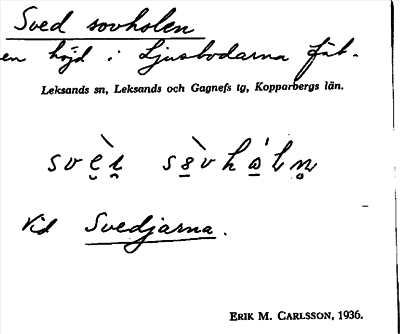 Sved sovholen
en höjd i Ljusbodarna fäb.
Leksands sn, Leksands och Gagnefs tg, Kopparbergs län.
Vid Svedjärna.
ERIK M. CARLSSON, 1936.